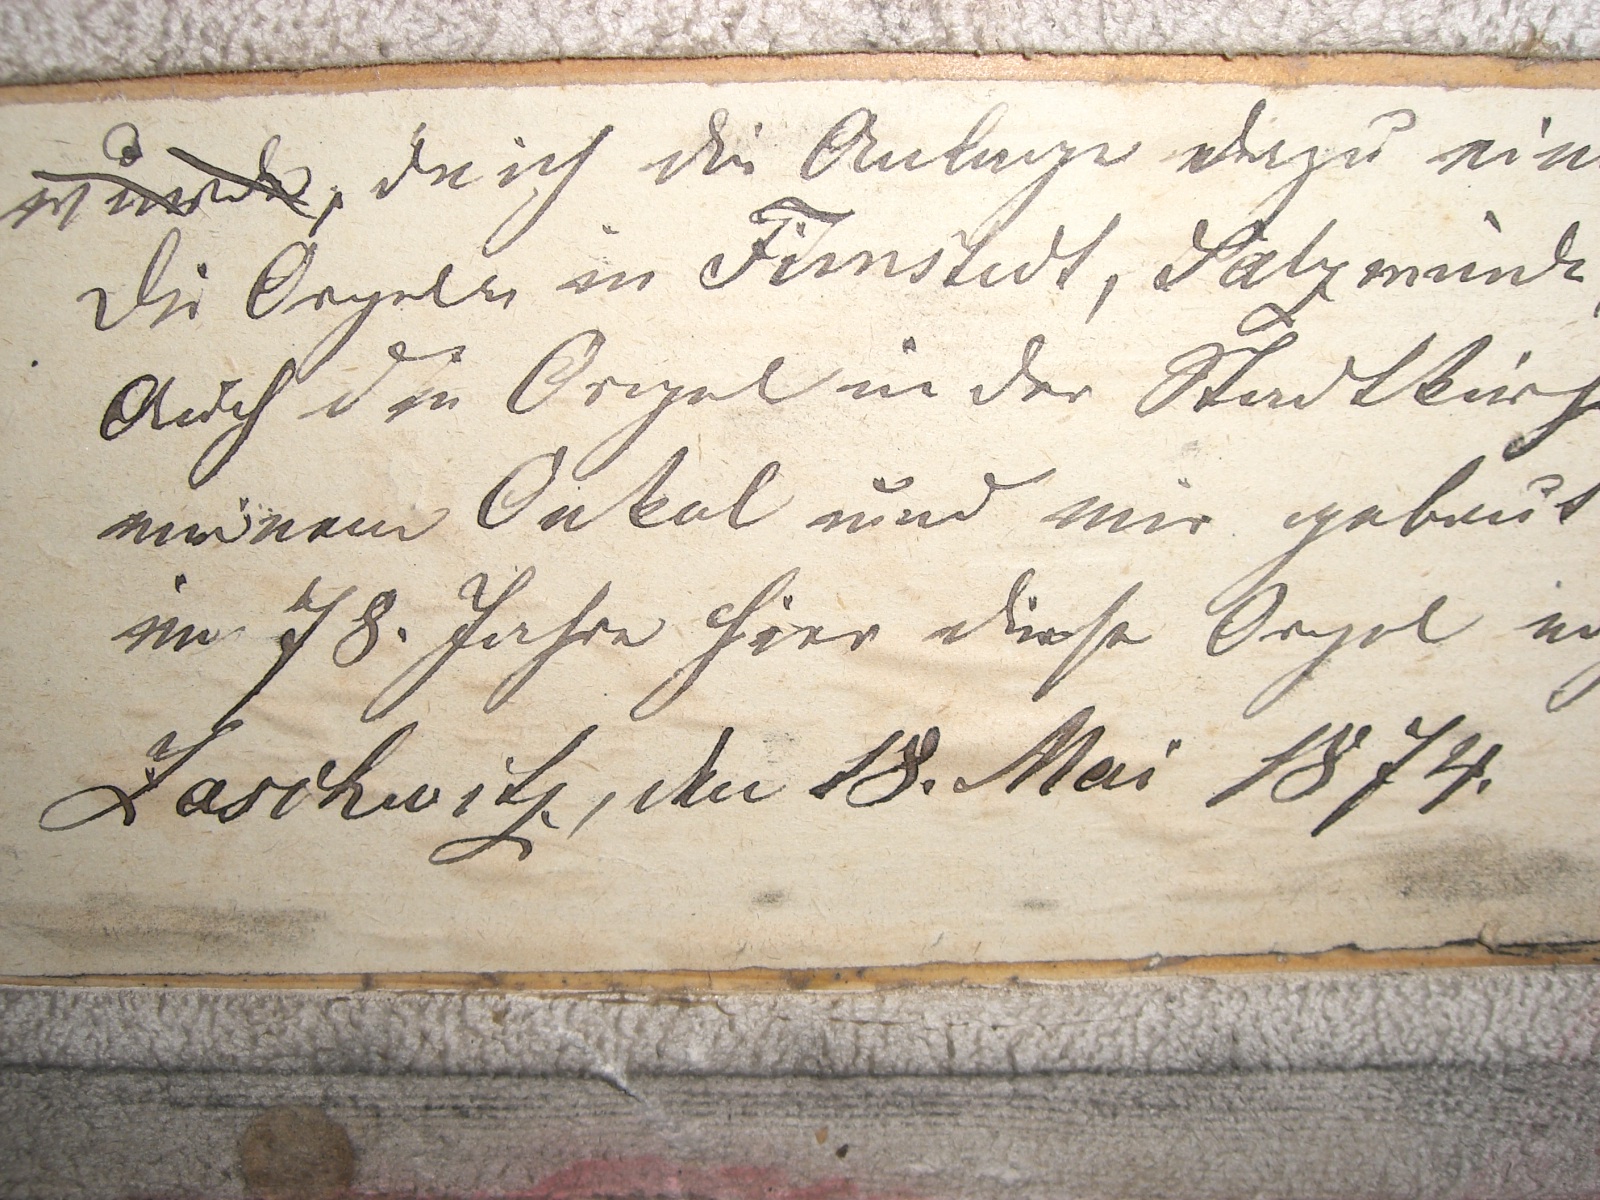 wurde, da ich die Anlage dazu ein
Die Orgeln in Fienstedt, Salzmünde,
Auch die Orgel in der Stadtkirch
meinem Onkel und mir gebaut
im 78. Jahre hier diese Orgel
Zaschwitz, den 18. Mai 1874.